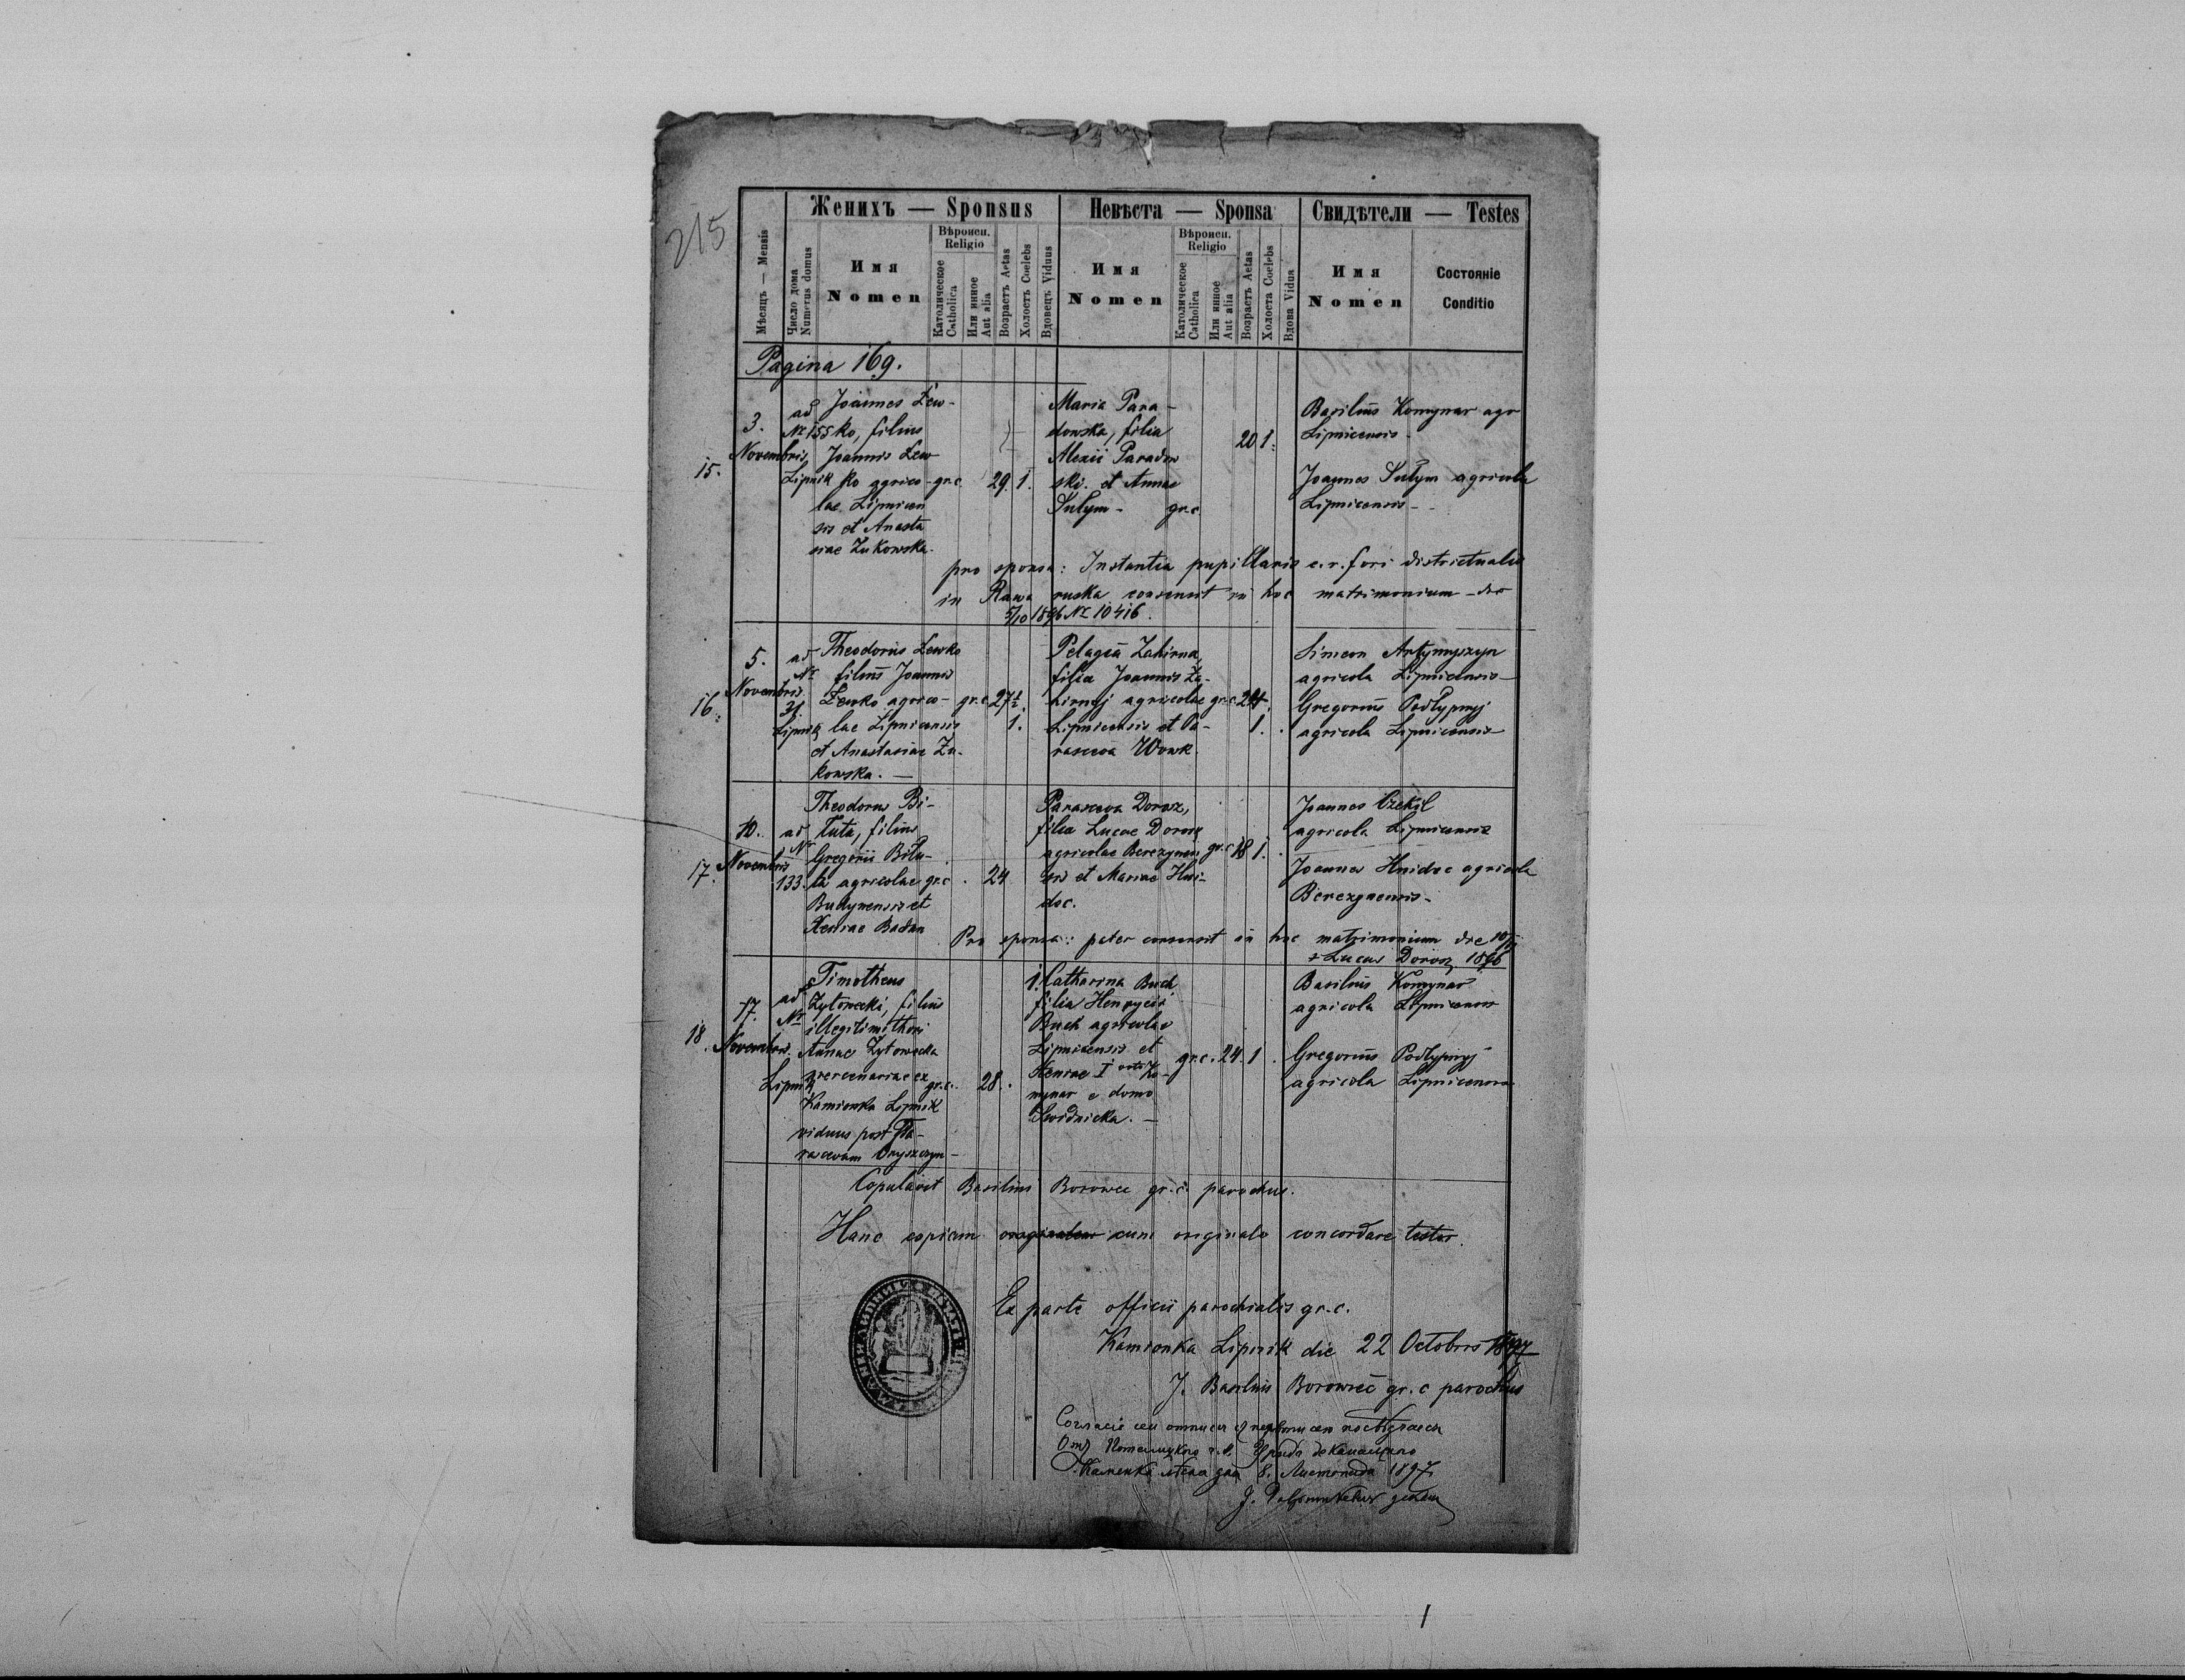 215
Женихъ — Sponsus
Невѣста — Sponsa
Свидѣтели — Testes
Мѣсяцъ — Mensis
Число дома
Numerus domus
Имя
Nomen
Вѣроисп.
Religio
Католическое
Catholica
Или инное
Aut alia
Возрастъ Aetas
Холостъ Coelebs
Вдовецъ Viduus
Имя
Nomen
Вѣроисп.
Religio
Католическое
Catholica
Или инное
Aut alia
Возрастъ Aetas
Холоста Coelebs
Вдова Vidua
Имя
Nomen
Состояніе
Conditio
Pagina 169.
15.
3.
Novembris
ad
Nr 155
Lipnik
Joannes Lew-
ko, filius
Joannis Lew
ko agrico-
lae Lipnicen
sis et Anasta
siae Żukowska.
gr.c.
29. 1.
Maria Para-
dowska, filia
Alexii Paradow
ski et Annae
Sułym - gr.c.
20 1.
Basilius Komynar agr
Lipnicensis.
Joannes Sułym agricola
Lipnicensis -
pro sponsa: Instantia pupillaris c.r. fori districtualis
in Rawa ruska consensit in hoc matrimonium - dto
5/10 1896 Nr 10416.
16.
5.
Novembris
ad
Nr
31
Lipnik
Theodorus Lewko
filius Joannis
Lewko agrico-
lae Lipnicensis
et Anastasiae Żu-
kowska. —
gr.c. 27½
1.
Pelagia Zahirna,
filia Joannis Za-
hirnyj agricolae
Lipnicensis et Pa-
rasceva Wowk.
gr.c. 24.
1.
Simeon Artymyszyn
agricola Lipnicensis -
Gregorius Podłypnyj
agricola Lipnicensis
17.
10.
Novembris
ad
Nr
133.
Theodorus Bi-
łuta, filius
Gregorii Biłu-
ta agricolae
Budynensis et
Xeniae Badan
gr.c. 24
Parasceva Dorosz,
filia Lucae Dorosz
agricolae Berezynen
sis et Mariae Hni-
dec.
gr.c. 18 1.
Joannes Czekył
agricola Lipnicensis
Joannes Hnidec agricola
Berezynensis -
Pro sponsa: pater consensit in hoc matrimonium die 10/11
+ Lucas Dorosz 1896
18.
17.
Novembris.
ad
Nr
Lipnik
Timotheus
Żytowecki, filius
illegitimi thori
Annae Żytowecka
mercenariae ex
Kamionka Lipnik
viduus post Pa-
rascevam Onyszczyn -
gr.c. 28.
1. Catharina Buck
filia
Buck agricolae
Lipnicensis et
Xeniae I voti Ko-
mynar e domo
Swidnicka. —
gr.c. 24. 1.
Basilius Komynar
agricola Lipnicensis
Gregorius Podłypnyj
agricola Lipnicensis
Copulavit Basilius Borowec gr.c. parochus.
Hanc copiam cum originale concordare testor.
Ex parte officii parochialis gr.c.
Kamionka Lipnik die 22 Octobris 1897
J. Basilius Borowec gr.c parochus